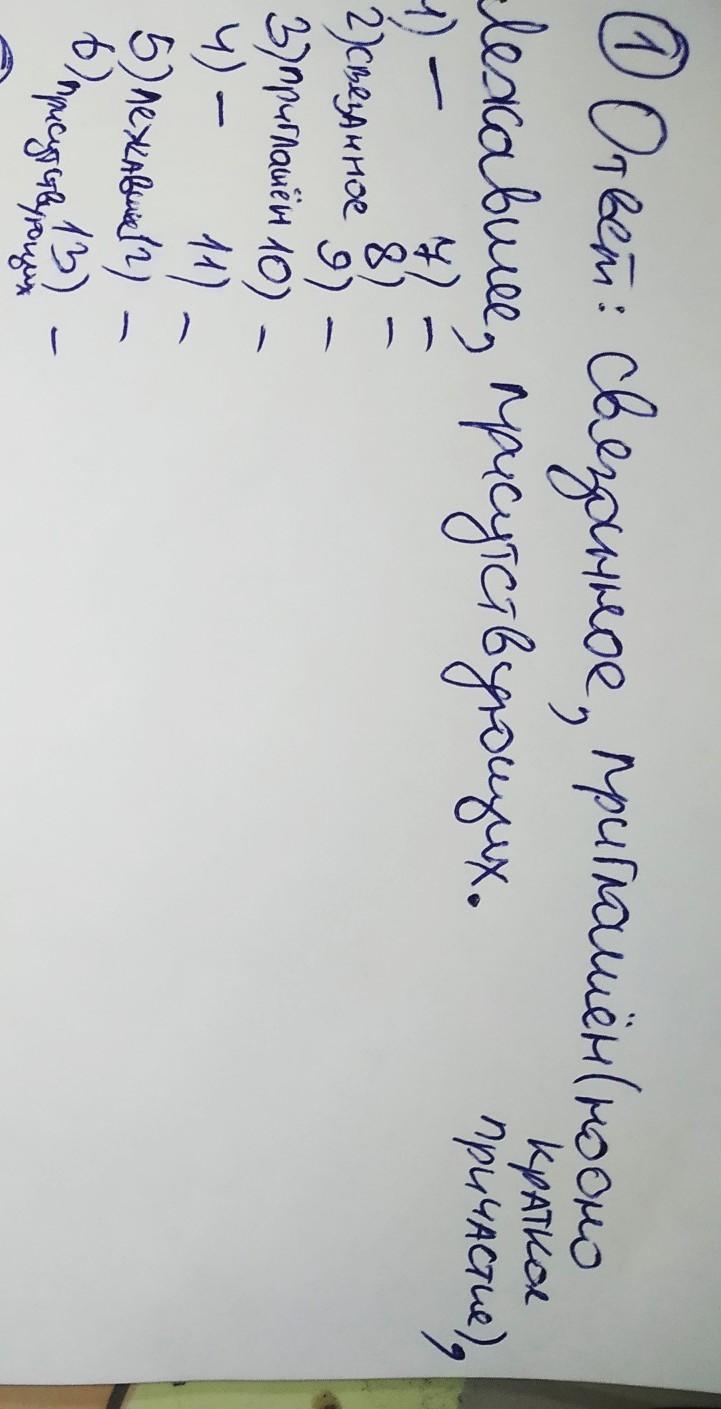 ① Ответ: свезанное, приглашён (но оно краткое причастие),
лежавшее, присутствующих.
1) – 7) –
2) свезанное 8) –
3) приглашён 10) –
4) – 11) –
5) лежавшее 12) –
6) присутствующих 13) –
9) –